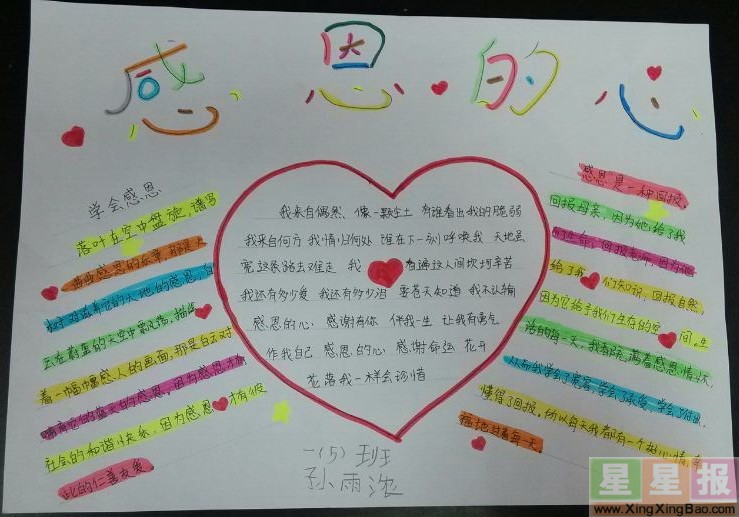 感恩的心
学会感恩
落叶在空中盘旋，谱写
着一曲感恩的乐章，那是大
树对滋养它的大地的感恩，白
云在蔚蓝的天空中飘荡，描绘
着一幅幅感人的画面，那是白云对
哺育它的蓝天的感恩，因为感恩才有
社会的和谐快乐，因为感恩才有彼
此的仁善友爱。
我来自偶然、像一颗尘土 有谁看出我的脆弱
我来自何方 我情归何处 谁在下一刻呼唤我 天地虽
宽这条路却难走 我 看遍这人间坎坷辛苦
我还有多少爱 我还有多少泪 要苍天知道 我不认输
感恩的心 感谢有你 伴我一生 让我有勇气
作我自己 感恩的心 感谢命运 花开
花落我一样会珍惜
一（5）班
孙雨浓
感恩是一种回报，
回报母亲，因为她给了我
们生命，回报老师，因为他
给了我们知识，回报自然，
因为它给予我们生存的空间。生
活的每一天，我都充满着感恩情怀，
从而我学会了宽容，学会了承受，学会了付出，
懂得了回报。所以每天我都有一个甜心情，幸
福地过着每一天。
星星报
www.XingXingBao.com